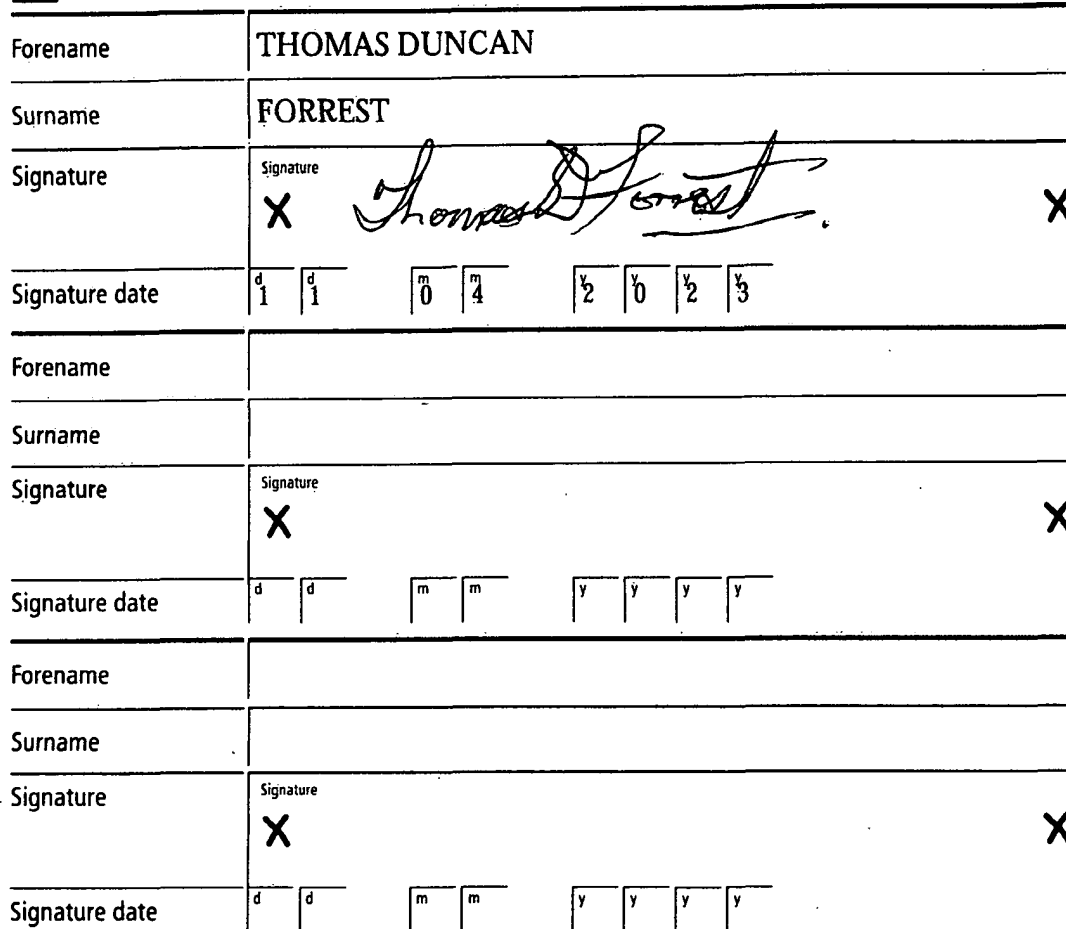 Forename THOMAS DUNCAN
Surname FORREST
Signature Signature
X Thomas D Forrest X
Signature date d1 d1 m0 m4 y2 y0 y2 y3
Forename
Surname
Signature Signature
X X
Signature date d d m m y y y y
Forename
Surname
Signature Signature
X X
Signature date d d m m y y y y